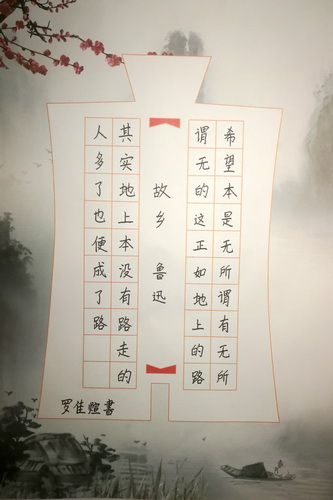 希望本是无所谓有无所
谓无的这正如地上的路
故乡 鲁迅
其实地上本没有路走的
人多了也便成了路
罗佳煊書